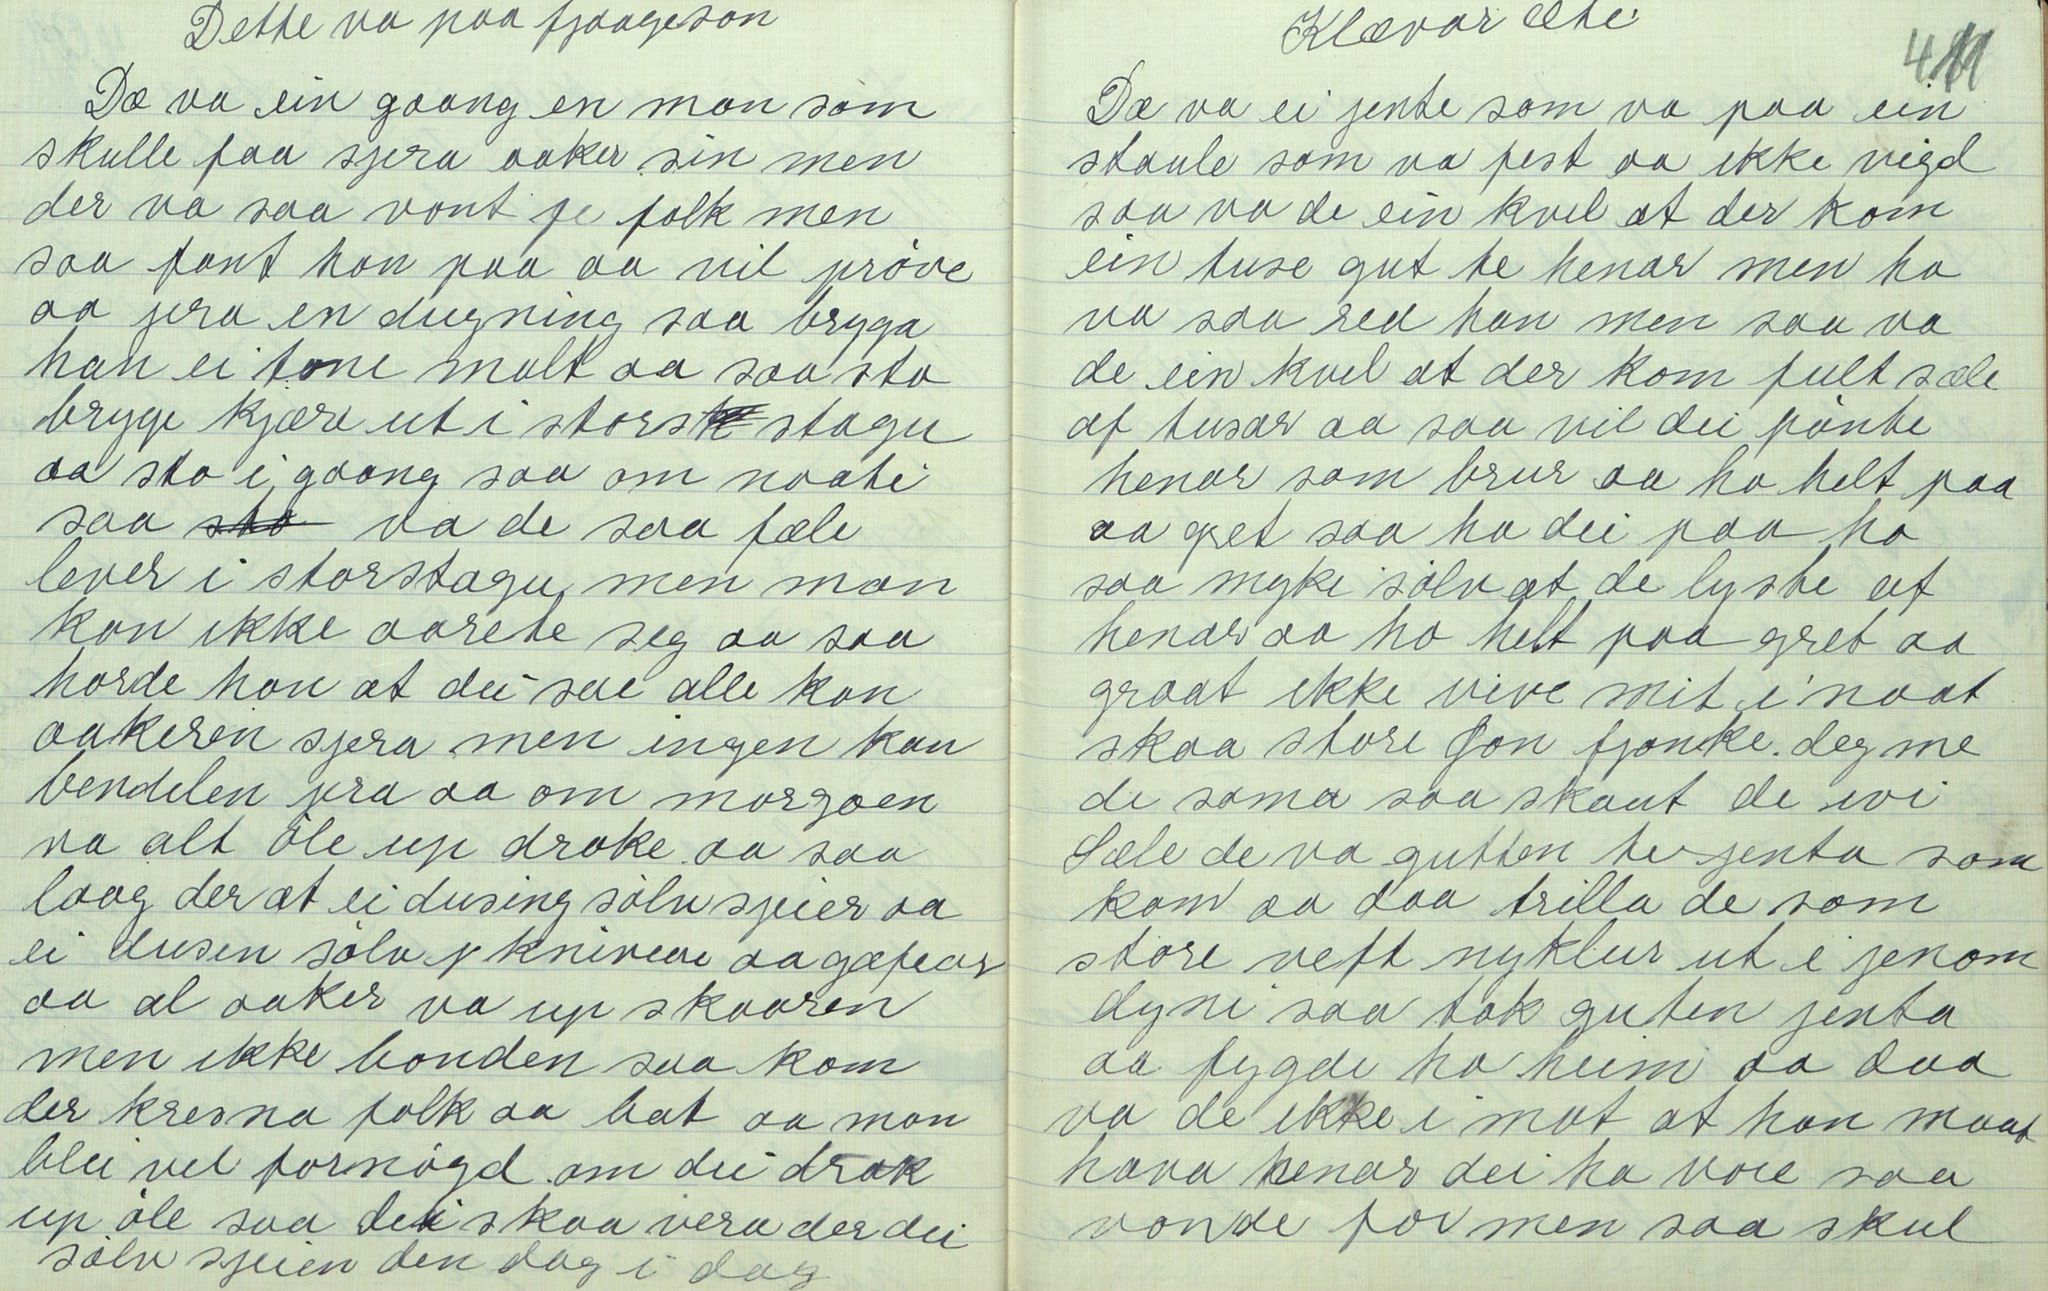 Dette va paa fjaageson
Dæ va ein goang en man som
skulle faa sjera aaker sin men
der va saa vont fe folk men
saa fant han paa aa vil prøve
aa jera en dugning saa brygga
han ei tone malt aa saa sto
bryge kjære ut i storst stagu
aa sto i goang saa om naati
saa sto va de saa fæle
lever i storstagu men man
kan ikke aarete seg aa saa
horde han at dei sae alle kan
aakeren sjera men ingen kan
bendelen jera aa om morgoen
va alt øle up droke aa saa
laag der at ei dusing sølv sjeier aa
ei dusen sølv knivere aa gæfear
aa al aaker va up skaaren
men ikke bonden saa kom
der kresna folk aa bat aa man
blei vel fornøgd om dei drak
up øle saa dei skaa vera der dei
sølv sjeien den dag i dag
Klævar ette
411
Dæ va ei jente som va paa ein
staule som va fest aa ikke vigd
saa va de ein kvel at der kom
ein tuse gut te henar men ho
va saa red han men saa va
de ein kvel at der kom fult sæle
af tusar aa saa vil dei pønte
henar som brur aa ho helt paa
aa gret saa ha dei paa ho
saa myke sølv at de lyste af
henar aa ho helt paa gret aa
graat ikke vive mit i naat
skaa store Jon fjonke deg me
de soma saa skaut de ivi
Sæle de va gutten te jenta som
kom aa daa trilla de som
store veft nyklur ut i jenom
dyni saa tok guten jenta
aa fygde ho heim aa daa
va de ikke i mot at han maat
hava henar dei ha voie saa
vonde for men saa skul